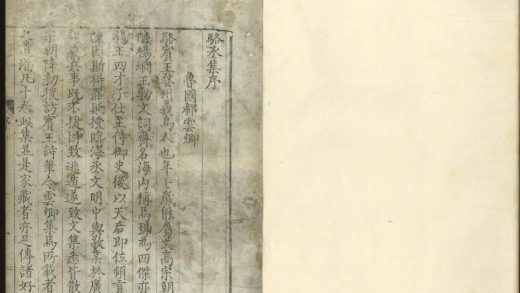 駱丞集序
魯國郗雲卿
駱賓王婺州義烏人也年七歲能屬文高宗朝
隣楊烱王勃文詞齊名海内稱焉號為四傑亦
楊王四才子仕至侍御史後以天后即位頻貢
諫因斯得罪貶授臨海丞文明中與敬業於廣
兵事既不捷因致逃遁遂致文集悉皆散
宗朝降勅搜訪賓王詩筆令雲卿集焉所載者
之遺漏凡十卷此集並是家藏者亦足傳諸好